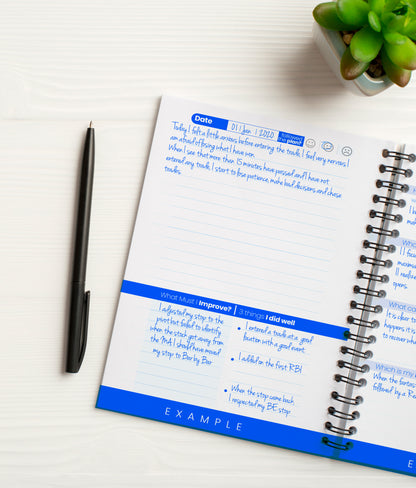 Date 01 | Jan | 2020 followed my plan?
Today I felt a little anxious before entering the trade, I feel very nervous I
am afraid of losing what I have won.
When I see that more than 15 minutes have passed and I have not
entered any trade, I start to lose patience, make bad decisions and chase
trades.
What Must I improve? | 3 things I did well
I adjusted my stop to the
pivot but failed to identify
when the stock got away from
the MA I should have moved
my stop to Bar by Bar
I entered a trade at a good
location with a good event.
I added on the first RBI
When the stop came back
I respected my BE stop
EXAMPLE
When the
followed by a Re
E